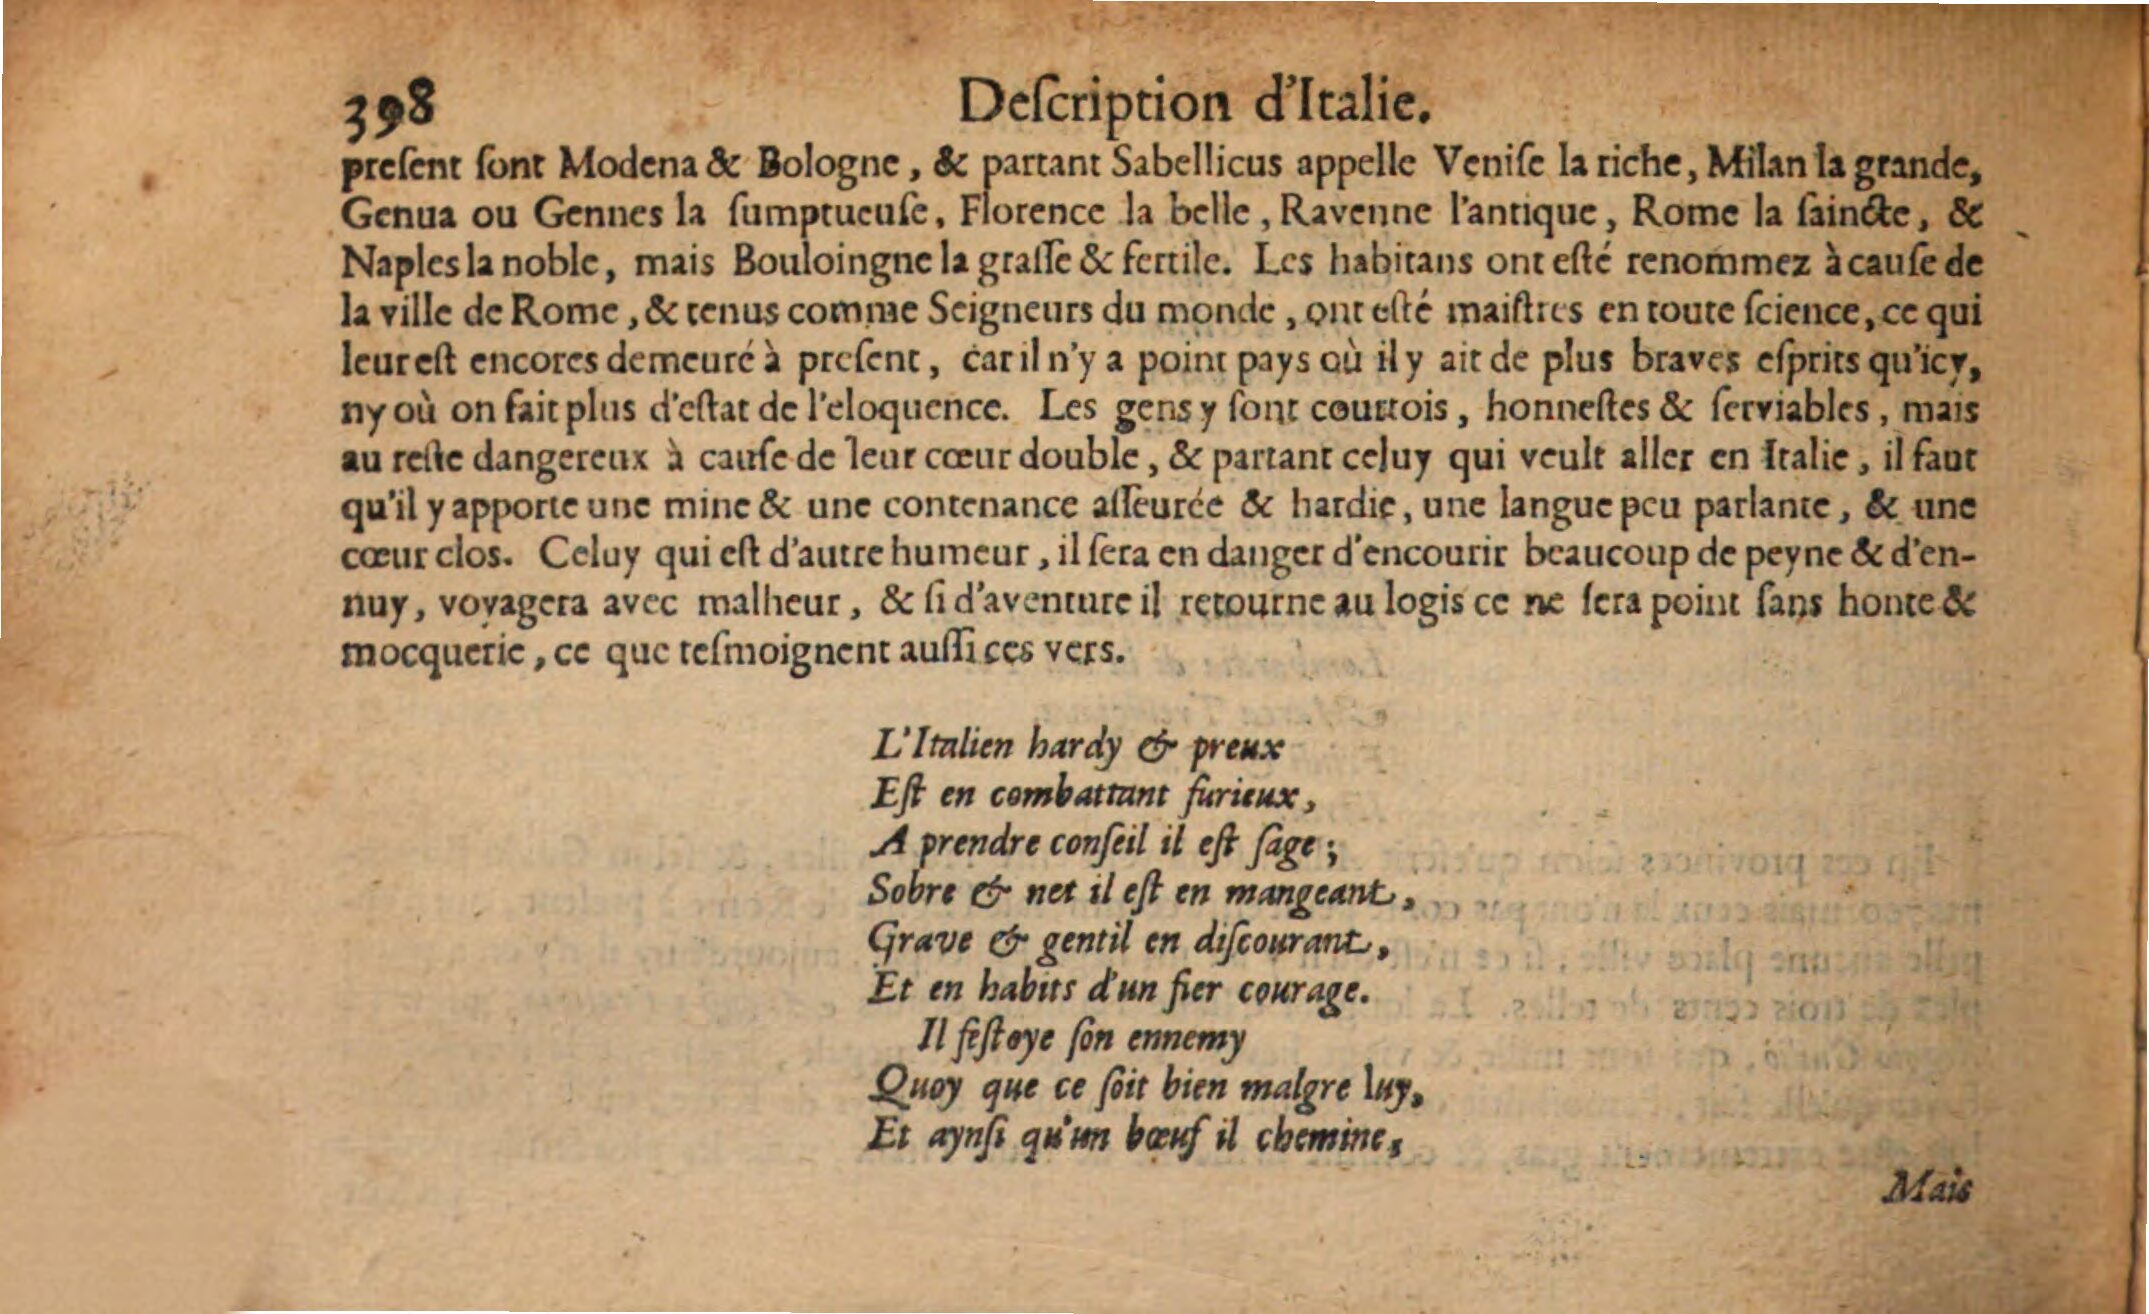 398 Deſcription d'Italie.
preſent ſont Modena & Bologne, & partant Sabellicus appelle Veniſe la riche, Milan la grande,
Genua ou Gennes la ſumptueuſe, Florence la belle, Ravenne l'antique, Rome la ſaincte, &
Naples la noble, mais Bouloingne la graſſe & fertile. Les habitans ont eſté renommez à cauſe de
la ville de Rome, & tenus comme Seigneurs du monde, ont eſté maiſtres en toute ſcience, ce qui
leur eſt encores demeuré à preſent, car il n'y a point pays où il y ait de plus braves eſprits qu'icy,
ny où on fait plus d'eſtat de l'eloquence. Les gens y ſont courtois, honneſtes & ſerviables, mais
au reſte dangereux à cauſe de leur cœur double, & partant celuy qui veult aller en Italie, il faut
qu'il y apporte une mine & une contenance aſſeurée & hardie, une langue peu parlante, & une
cœur clos. Celuy qui eſt d'autre humeur, il ſera en danger d'encourir beaucoup de peyne & d'en-
nuy, voyagera avec malheur, & ſi d'aventure il retourne au logis ce ne ſera point ſans honte &
mocquerie, ce que teſmoignent auſſi ces vers.
L'Italien hardy & preux
Eſt en combattant furieux,
A prendre conſeil il eſt ſage;
Sobre & net il eſt en mangeant,
Grave & gentil en diſcourant,
Et en habits d'un fier courage.
Il feſtoye ſon ennemy
Quoy que ce ſoit bien malgre luy,
Et aynſi qu'un bœuf il chemine,
Mais